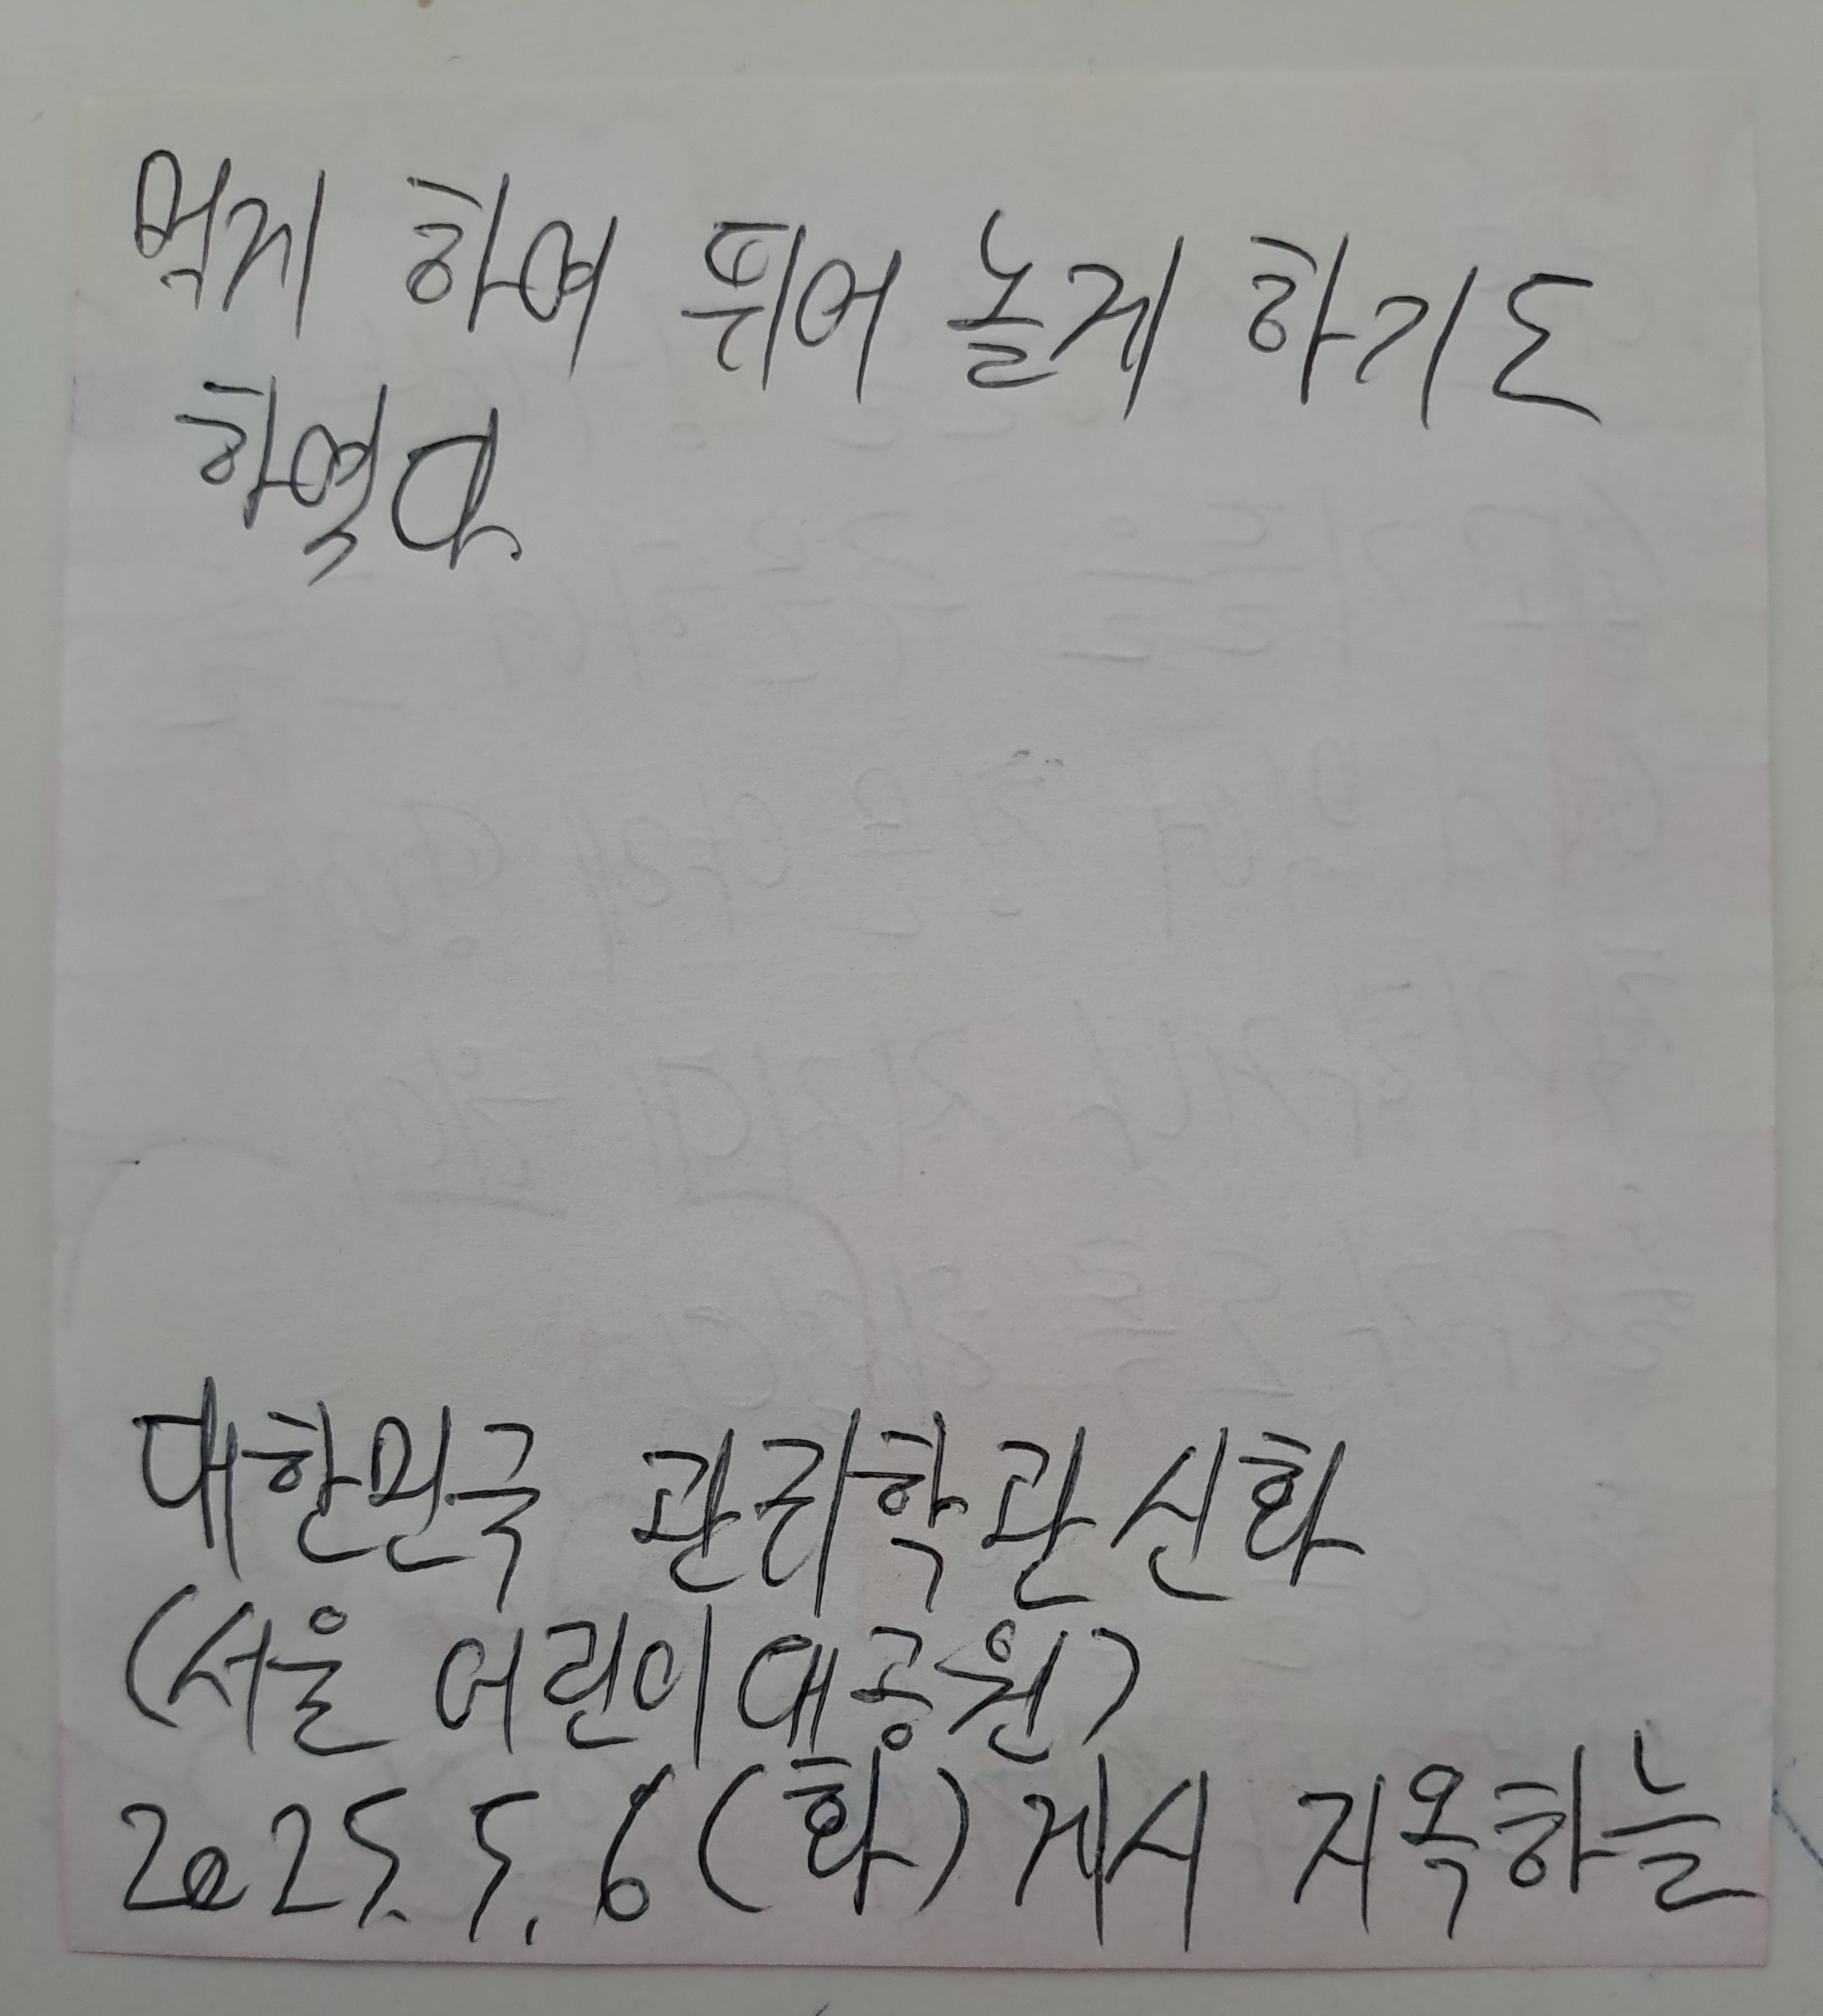 먹게 하여 뛰어 놀게 하기도
하였다.
대한민국 관리학관신화
(서울 어린이대공원)
2025.5.6(화) 게시 지옥하늘